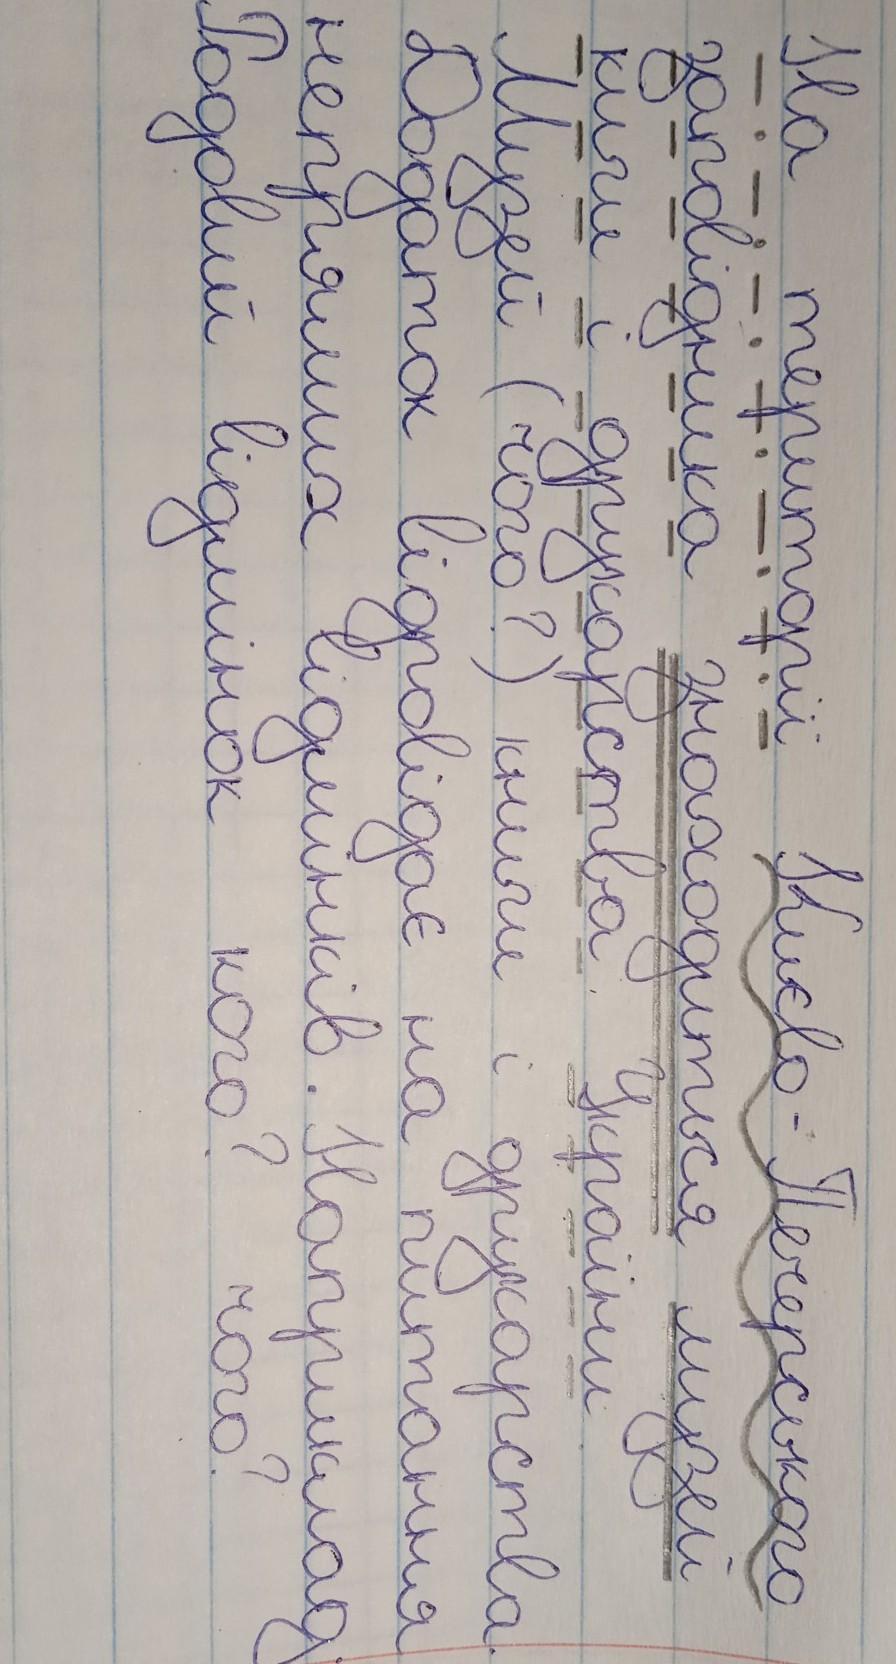 На території Києво-Печерського
заповідника знаходиться музей
книги і друкарства. України
Музей (чого?) книги і друкарства.
Додаток відповідає на питання
непрямих відмінків. Наприклад,
Родовий відмінок кого? чого?